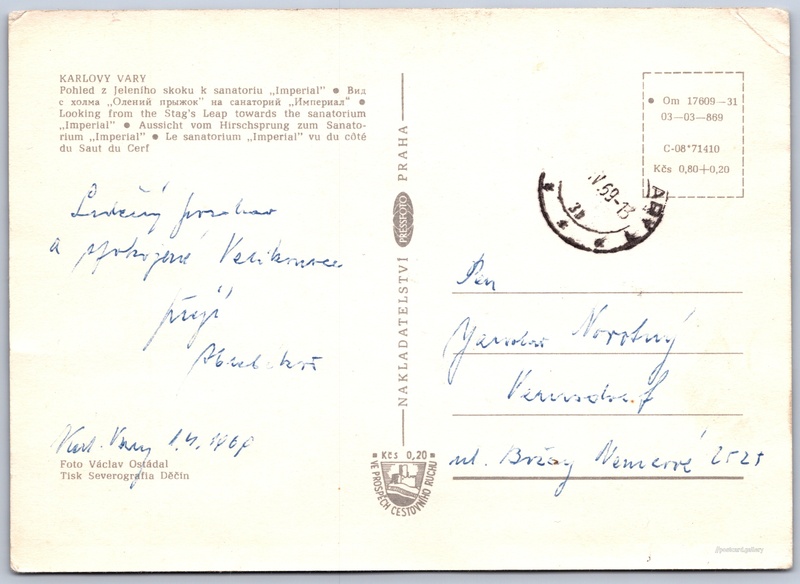 KARLOVY VARY
Pohled z Jeleního skoku k sanatoriu „Imperial" ● Вид
с холма „Олений прыжок" на санаторий „Империал" ●
Looking from the Stag's Leap towards the sanatorium
„Imperial" ● Aussicht vom Hirschsprung zum Sanato-
rium „Imperial" ● Le sanatorium „Imperial" vu du côté
du Saut du Cerf
Srdečný pozdrav
a spokojené Velikonoce
přejí
Karl. Vary 1.4.1969
Foto Václav Ostádal
Tisk Severografia Děčín
NAKLADATELSTVÍ PRESSFOTO PRAHA
Kčs 0,20
VE PROSPĚCH CESTOVNÍHO RUCHU
● Om 17609—31
03—03—869
C-08*71410
Kčs 0,80+0,20
IV.69-13
3b
ARY 1
Pan
Jaroslav Novotný
Varnsdorf
ul. Boženy Němcové 2525
@postcard.gallery